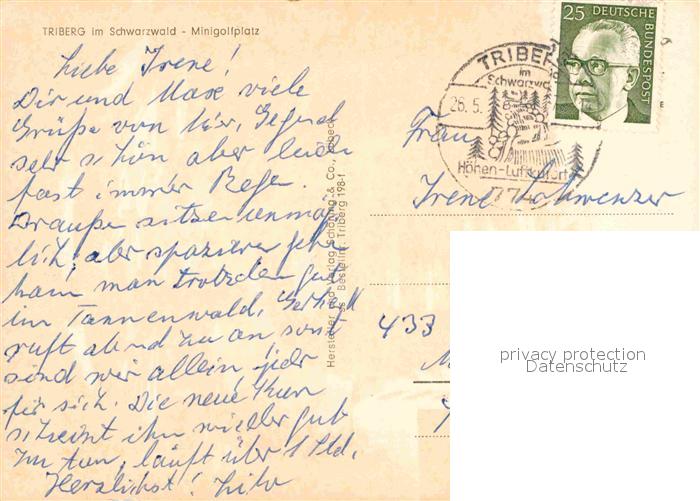 TRIBERG im Schwarzwald - Minigolfplatz
Liebe Irene!
Dir und Maxe viele
Grüße von hier, Gegend
sehr schön aber leider
fast immer Regen.
Draußen sitzen unmög-
lich, aber spazieren gehn
kann man trotzdem gut
im Tannenwald.
ruft ab und zu an, sonst
sind wir allein, jeder
für sich. Die neue Kur
scheint ihm wieder gut
zu tun, läuft über 1 Std.
Herzlichst!
Hersteller und Verlag Schöning & Co., Lübeck
Bestellnr. Triberg 198-1
TRIBERG
im
Schwarzwald
26.5.
Höhen-Luftkurort
774
25 DEUTSCHE
BUNDESPOST
Frau
Irene Schwenzer
433
privacy protection
Datenschutz